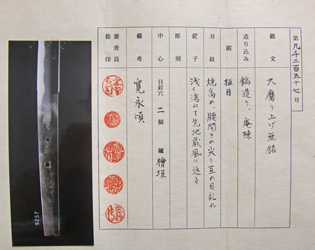 第九千二百五十七号
鑑文 大磨り上げ無銘
造り込み 鎬造り、庵棟
鍛 板目
刃紋 焼高め、腰開きの尖り互の目乱れ
鋩子 浅く湾れて先地蔵風に返る
彫刻
中心 目釘穴 二個 鑢 檜垣
備考 寛永頃
審査員捺印
9257